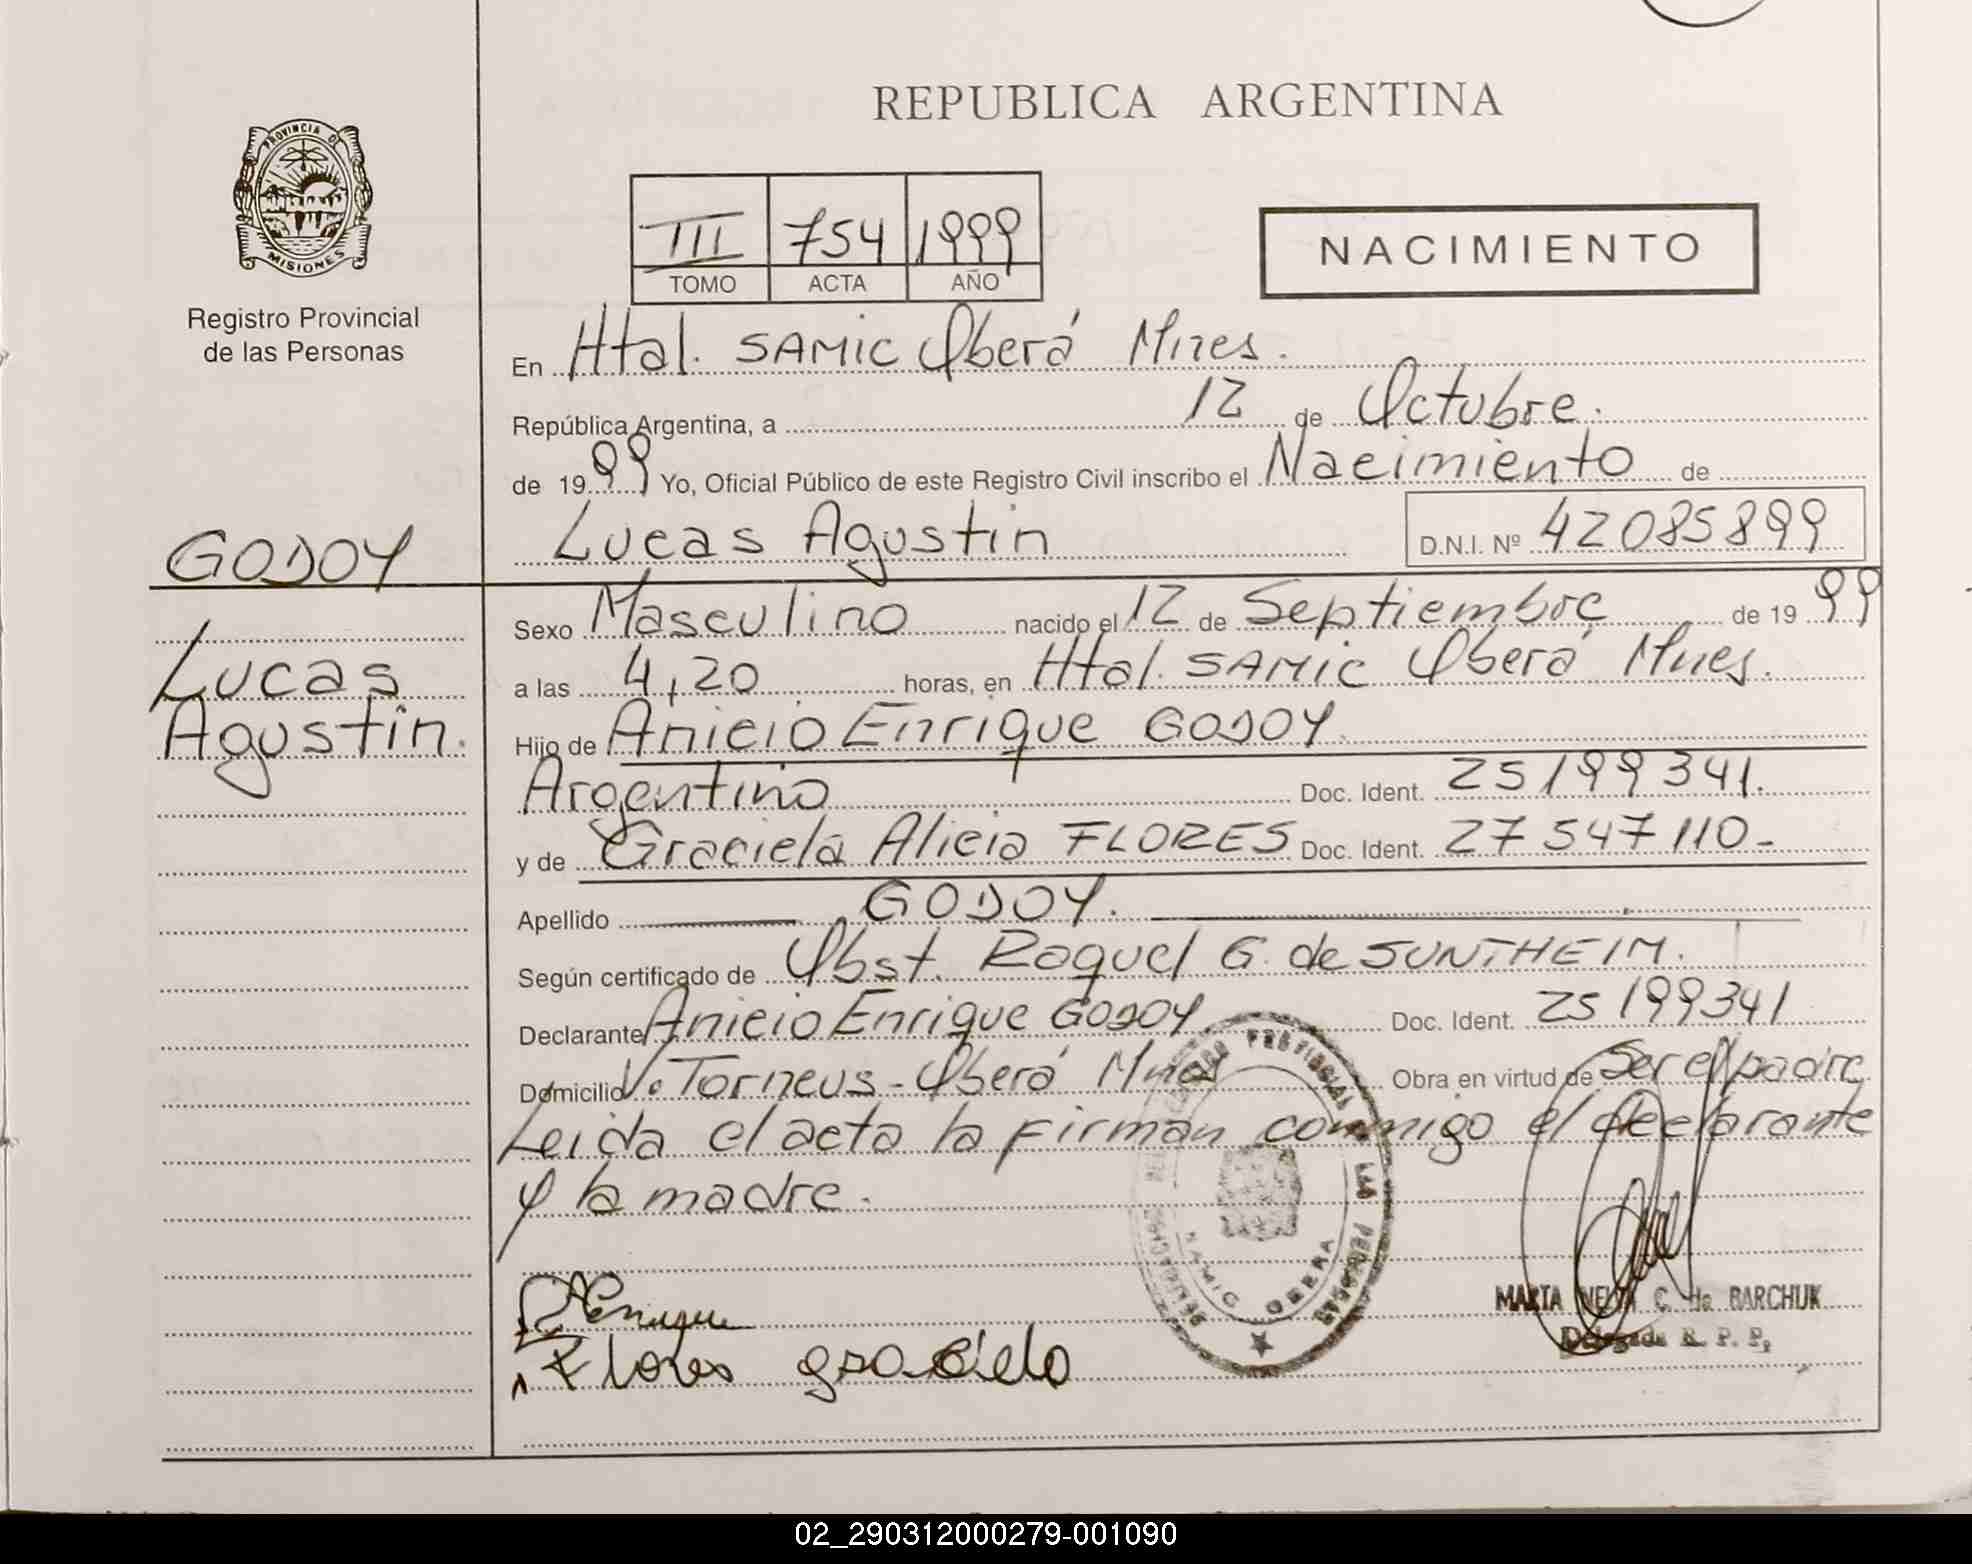 REPUBLICA ARGENTINA
PROVINCIA DE
MISIONES
Registro Provincial
de las Personas
III 754 1999
TOMO ACTA AÑO
NACIMIENTO
En Htal. SAMIC Oberá Mnes.
República Argentina, a 12 de Octubre.
de 1999 Yo, Oficial Público de este Registro Civil inscribo el Nacimiento de
Lucas Agustin D.N.I. Nº 42085899
GODOY
Lucas
Agustin.
Sexo Masculino nacido el 12 de Septiembre de 1999
a las 4,20 horas, en Htal. SAMIC Oberá Mnes.
Hijo de Anicio Enrique GODOY
Argentino Doc. Ident. 25199341.
y de Graciela Alicia FLORES Doc. Ident. 27547110-
Apellido GODOY.
Según certificado de Obst. Raquel G. de SUNTHEIM.
Declarante Anicio Enrique GODOY Doc. Ident. 25199341
Domicilio Vª Torneus - Oberá Mnes Obra en virtud de Ser el padre
Leida el acta la firman conmigo el declarante
y la madre.
Enrique
Flores graciela
REGISTRO PROVINCIAL DE LAS PERSONAS
SAMIC OBERA
MARTA NELIA C. de BARCHUK
Delegada R. P. P.
02_290312000279-001090